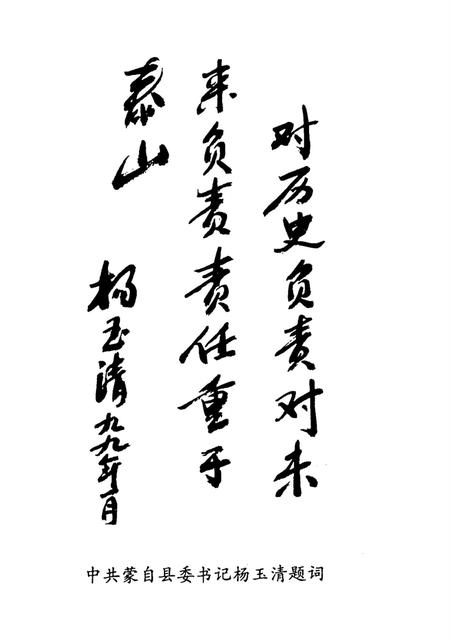 对历史负责对未
来负责责任重于
泰山
杨玉清九九年一月
中共蒙自县委书记杨玉清题词